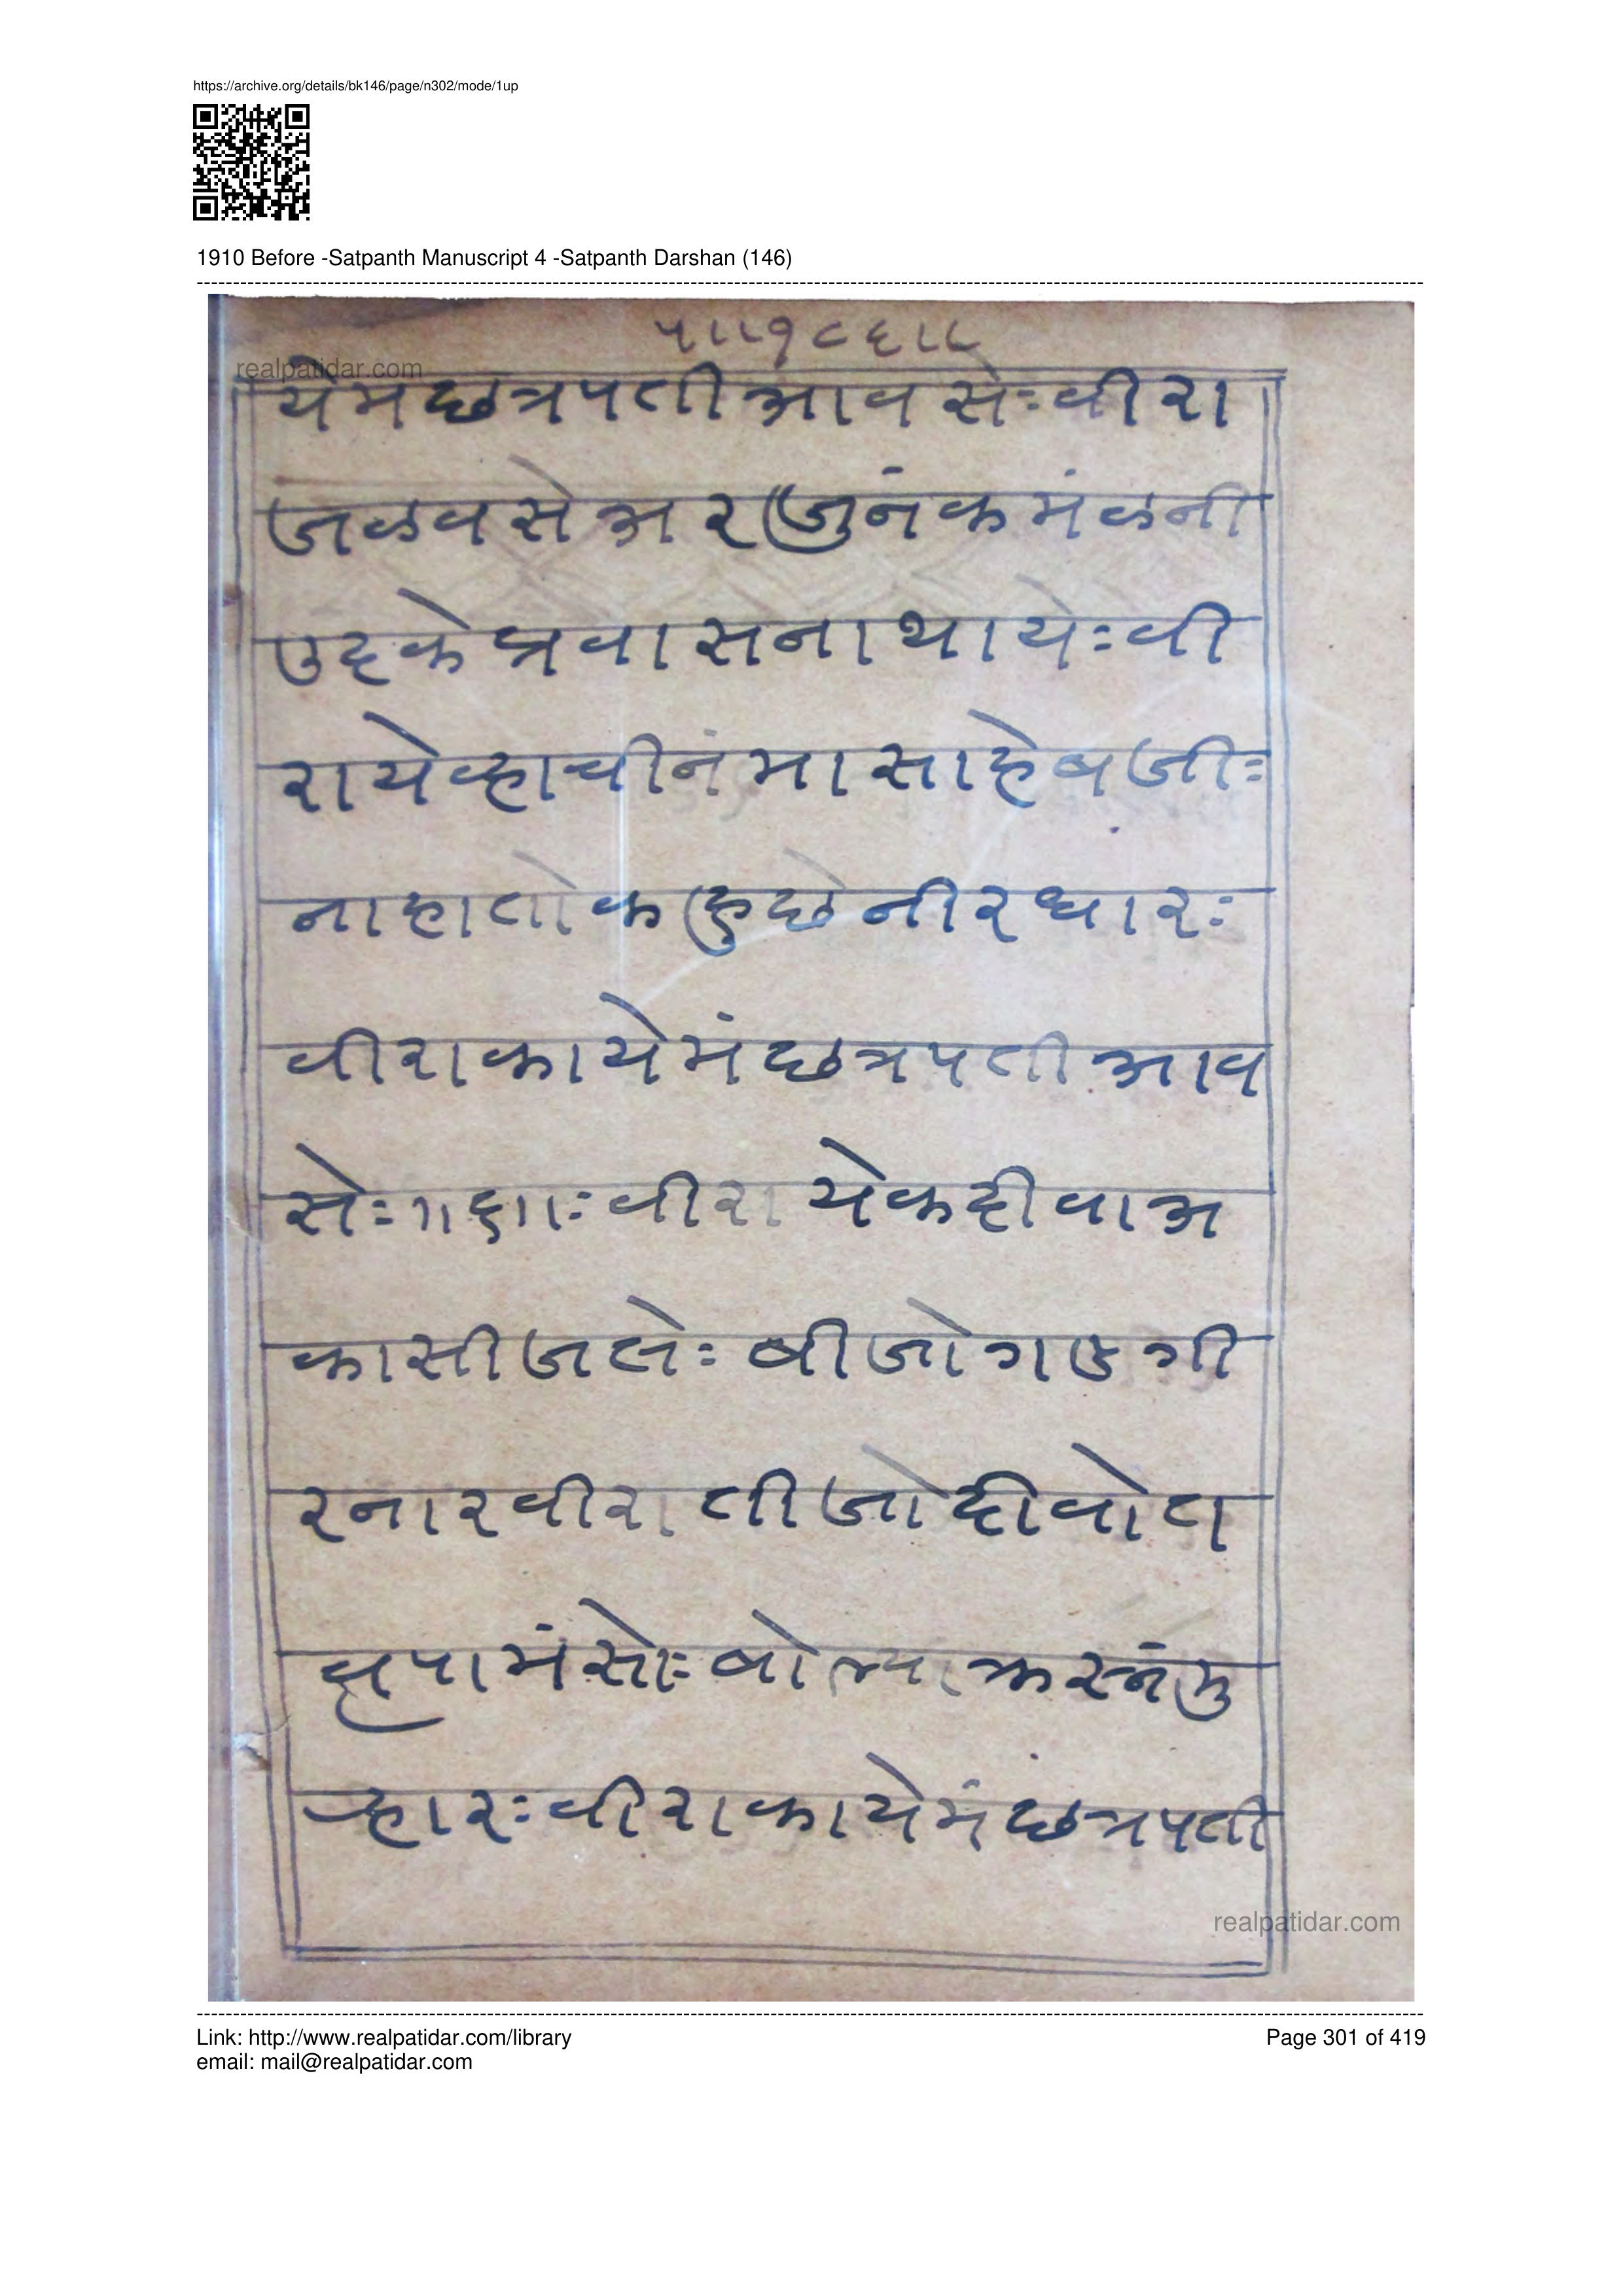 https://archive.org/details/bk146/page/n302/mode/1up
1910 Before -Satpanth Manuscript 4 -Satpanth Darshan (146)
realpatidar.com
येमछत्रपतीआवसेःवीरा
जळवसेअरजुनंकमंळनी
उदकेप्रवासनाथायेःवी
रायेव्हाचीनंमासाहेबजीः
नाहातोकहुछेनीरधारः
वीराकायेमंछत्रपतीआव
सेः॥६॥ःवीरायेकदीवाअ
कासीजलेःबीजोगडगी
रनारवीरातीजोदीवोटा
पामंसोःबोल्या
व्हारःवीराकायेमंछत्रपती
realpatidar.com
Link: http://www.realpatidar.com/library
Page 301 of 419
email: mail@realpatidar.com